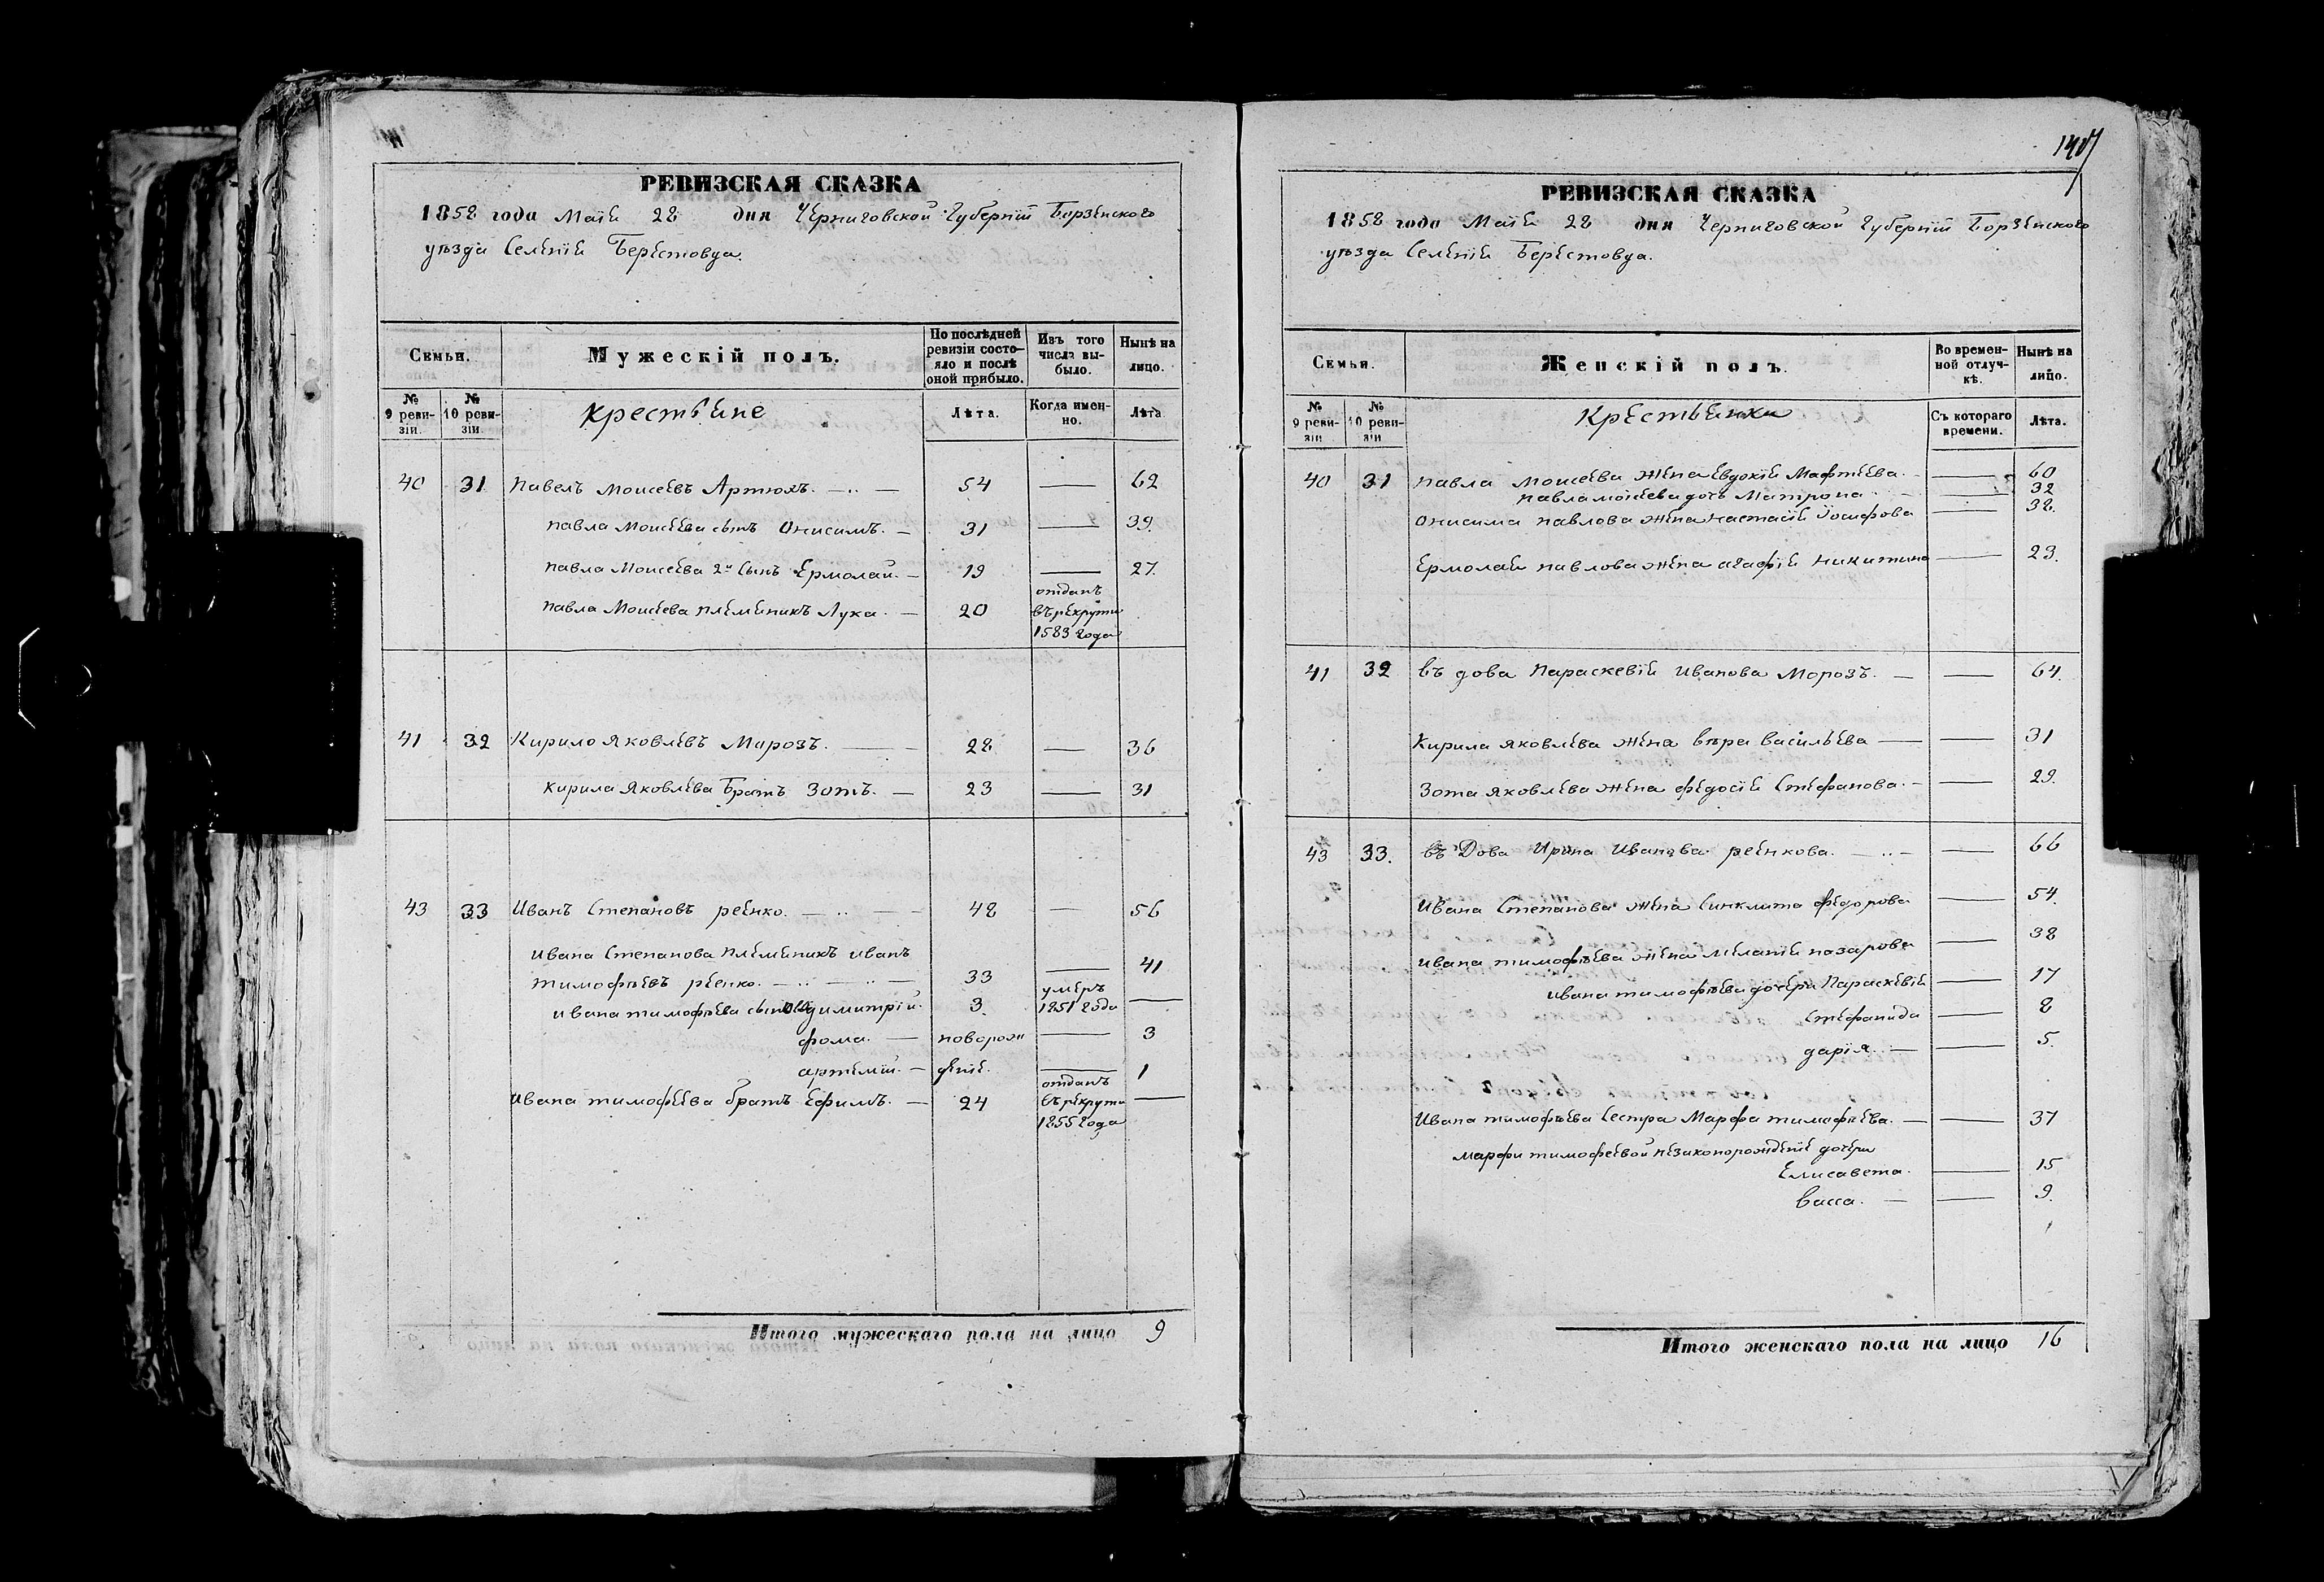 РЕВИЗСКАЯ СКАЗКА
1858 года Маія 28 дня Черниговской Губерніи Борзенского
уѣзда Селенія Берестовца.
Семьи.
Мужескій полъ.
По послѣдней
ревизіи состо-
яло и послѣ
оной прибыло.
Изъ того
числа вы-
было.
Нынѣ на
лицо.
№
9 реви-
зіи.
№
10 реви-
зіи
крестьяне
Лѣта.
Когда имен-
но.
Лѣта
40 31 Павелъ Моисеевъ Артюхъ. 54 — 62
Павла Моисеева сынъ Онисимъ. — 31 — 39.
Павла Моисеева 2й сынъ Ермолай. — 19 — 27.
Павла Моисеева племяникъ Лука. — 20 отданъ
въ рекруты
1583 года
41 32 Кирило Яковлевъ Марозъ. — 28 — 36
Кирила Яковлева Братъ Зотъ. — 23 — 31
43 33 Иванъ Степановъ реянко. — 48 — 56
Ивана Степанова племяникъ иванъ
тимофѣевъ реянко. — 33 — 41
ивана тимофѣева сыновя димитрій. 3. умеръ
1851 года —
фома. — новорож — 3
артемій. — деніе. — 1
Ивана тимофеева братъ Ефимъ. — 24 отданъ
въ рекруты
1855 года —
Итого мужескаго пола на лицо 9
1407
РЕВИЗСКАЯ СКАЗКА
1858 года Маія 28 дня Черниговской Губерніи Борзенского
уѣзда Селенія Берестовца.
Семьи.
Женскій полъ.
Во времен-
ной отлуч-
кѣ.
Нынѣ на
лицо.
№
9 реви-
зіи
№
10 реви-
зіи
Крестьянки
Съ котораго
времени.
Лѣта.
40 31 Павла Моисеева жена Евдокія Мафтеева. — 60
Павла моисеева дочь Матрона — 32
Онисима павлова жена настасія Іосифова — 38.
Ермолая павлова жена агафія никитина — 23.
41 32 въ дова Параскевія Иванова Морозъ. — — 64.
Кирила яковлева жена вѣра васильева — — 31
Зота яковлева жена федосія Стефанова. — — 29.
43 33. въ Дова Ирина Иванова реянкова. — — 66
Ивана Степанова жена Синклита федорова — 54.
ивана тимофѣева жена меланія назарова — 38
ивана тимофѣева дочери Параскевія — 17
Стефанида — 8
дарія. — — 5.
Ивана тимофѣева Сестра Марфа тимофѣева. — — 37
марфи тимофеевой незаконорожденіе дочери
Елисавета. — 15
васса. — — 9.
Итого женскаго пола на лицо 16